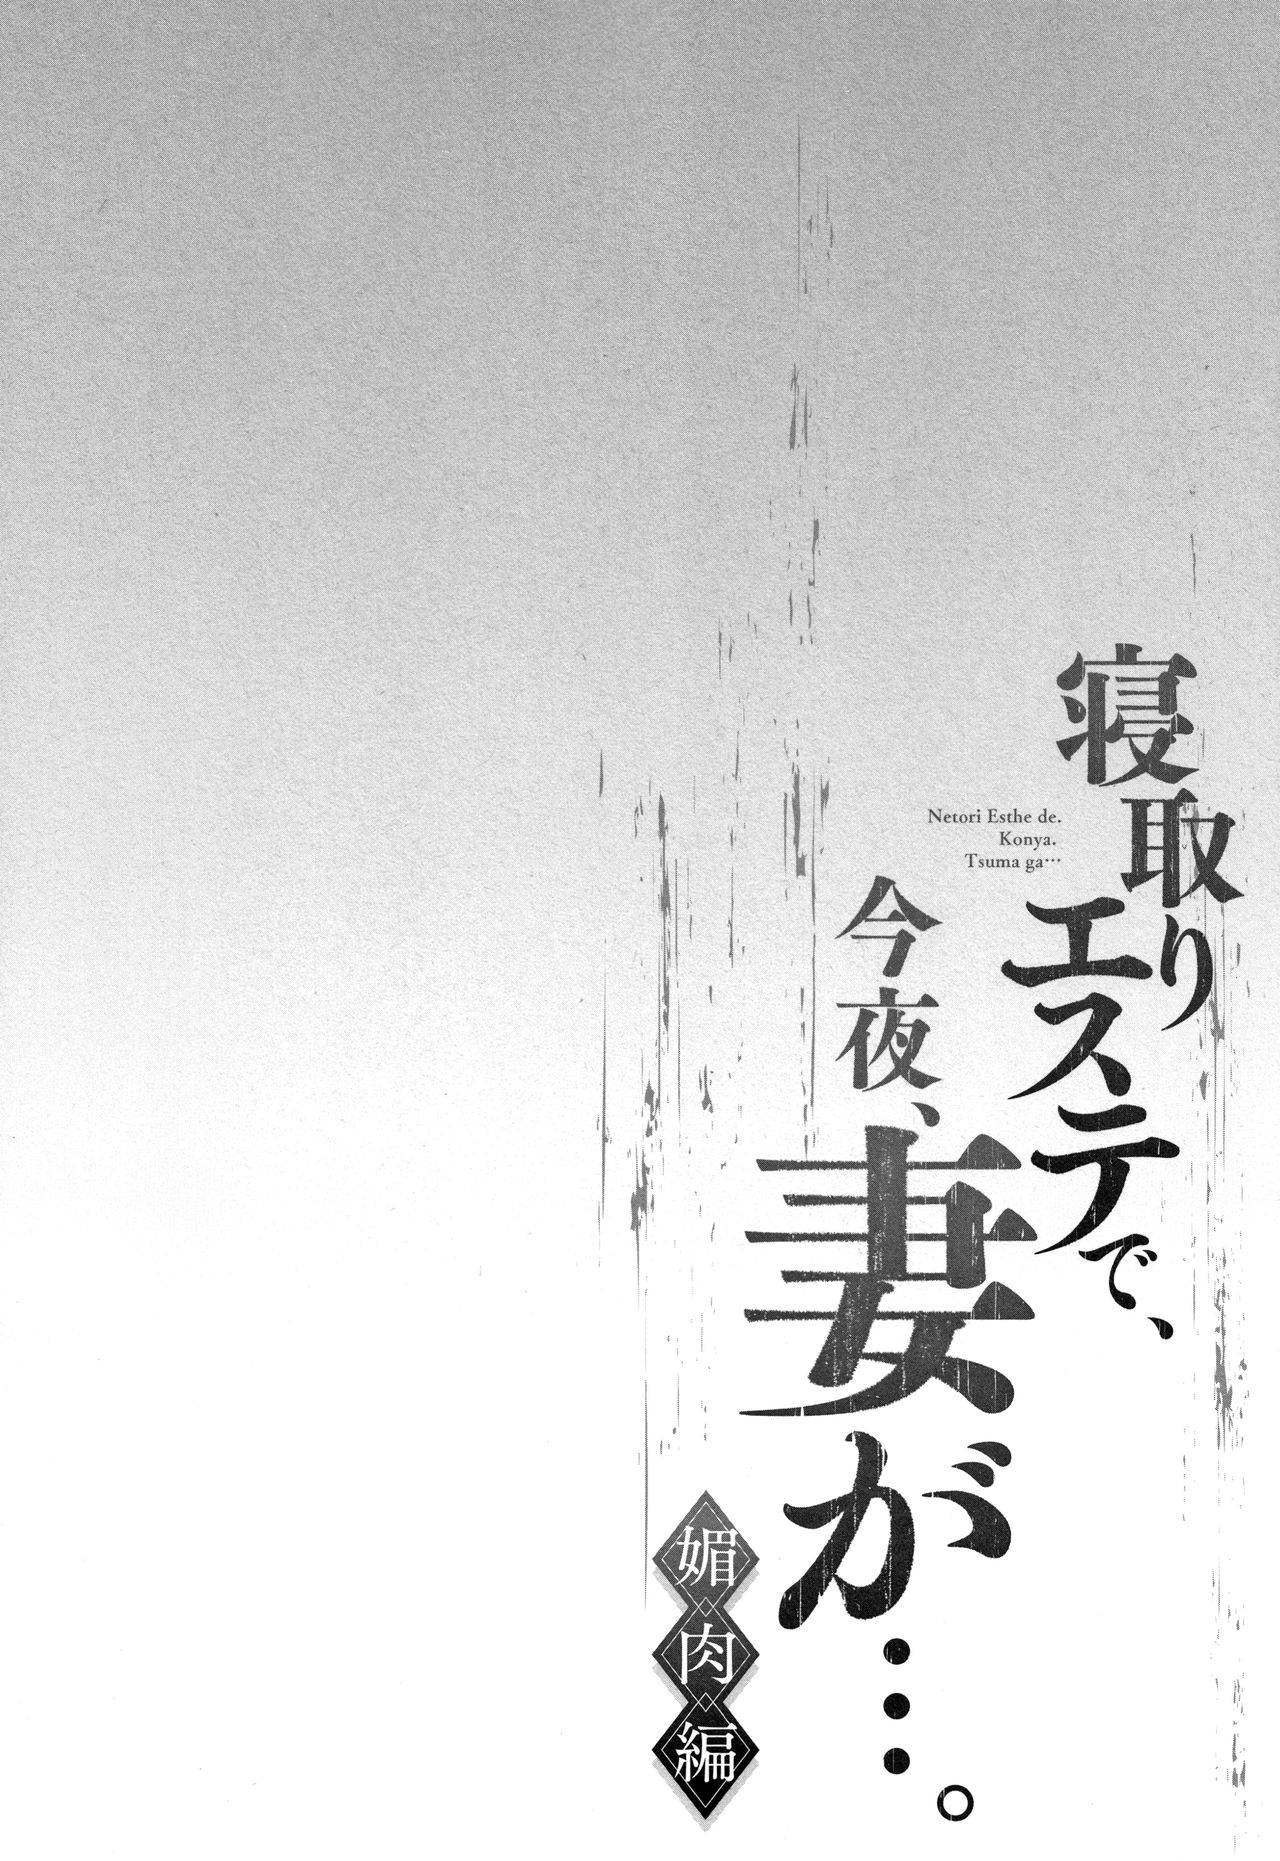 寝取り
エステで、
Netori Esthe de.
Konya.
Tsuma ga…
今夜、
妻が…。
媚肉編